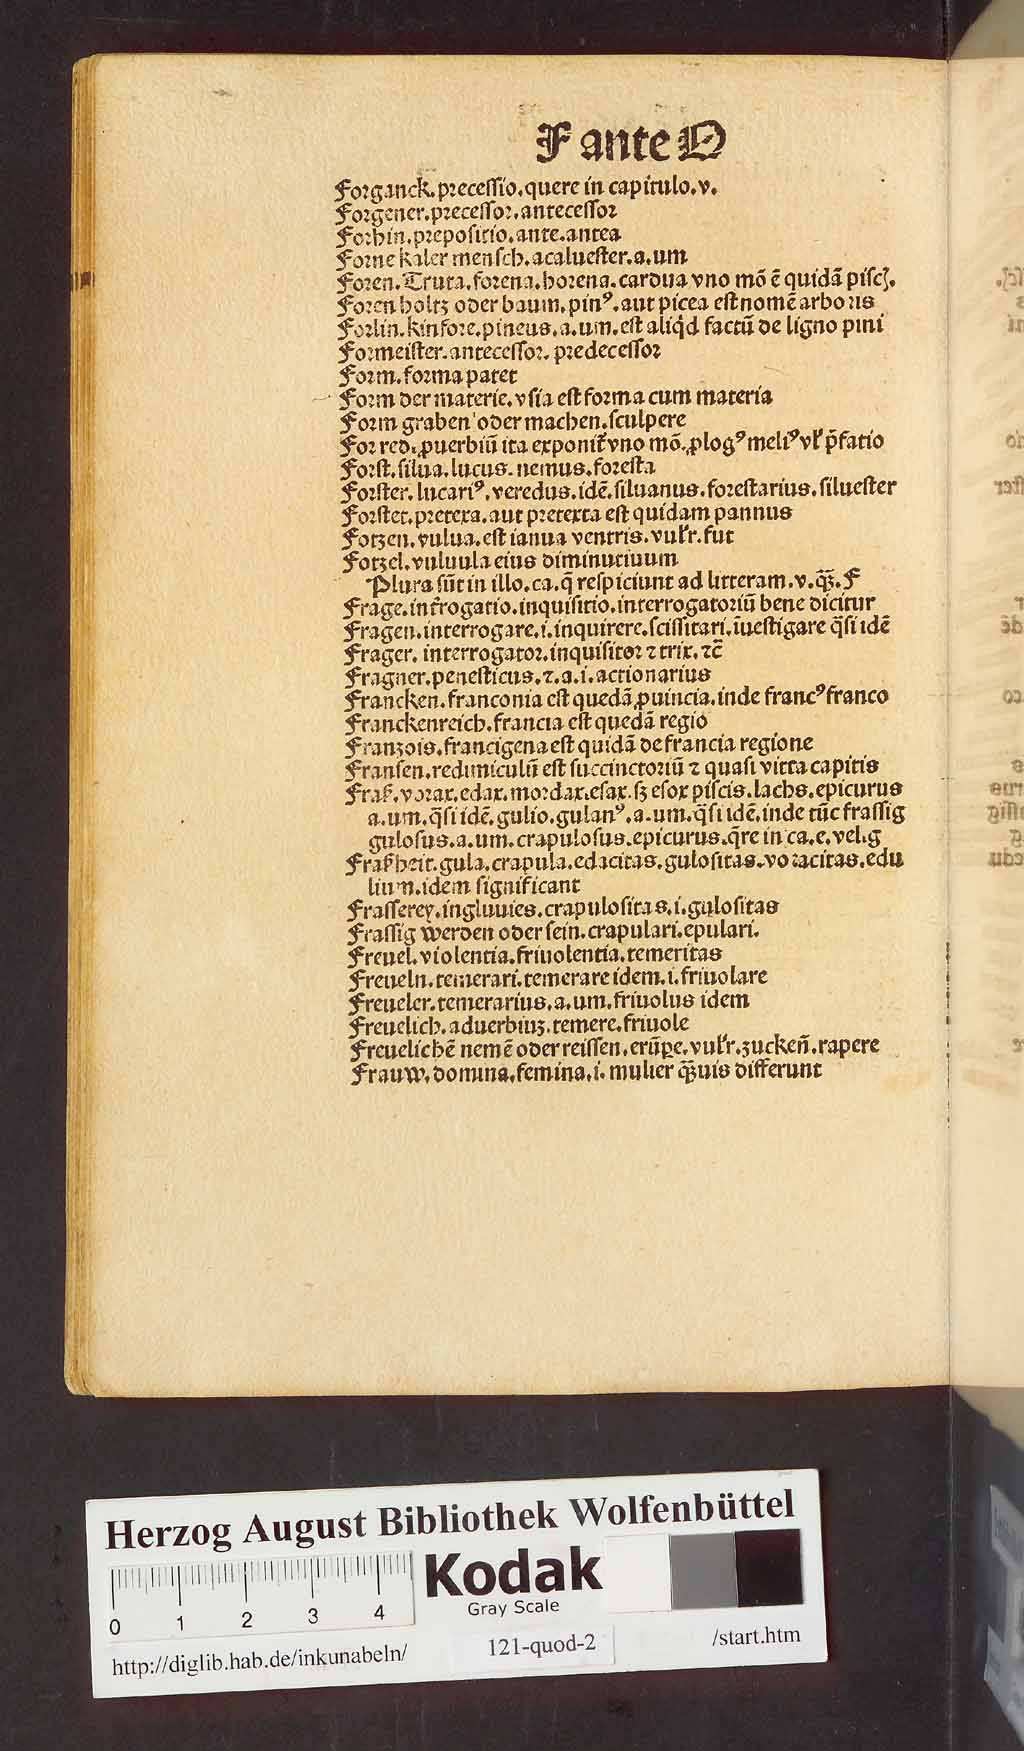 F ante O
Forganck. precessio. quere in capitulo. v.
Forgener. precessor. antecessor
Forhin. prepositio. ante. antea
Forne kaler mensch. acaluester. a. um
Foren. Truta. forena. horena. cardua vno mō ē quidā piscꝫ.
Foren holtz oder baum. pinꝰ. aut picea est nomē arboris
Forlin. kinfore. pineus. a. um. est aliq̇d factū de ligno pini
Formeister. antecessor. predecessor
Form. forma patet
Form der materie. vsia est forma cum materia
Form graben oder machen. sculpere
For red. ꝓuerbiū ita exponit᷑ vno mō. ꝓlogꝰ meliꝰ vl̛ p̄fatio
Forst. silua. lucus. nemus. foresta
Forster. lucariꝰ. veredus. idē. siluanus. forestarius. siluester
Forstet. pretexa. aut pretexta est quidam pannus
Fotzen. vulua. est ianua ventris. vul̛r. fut
Fotzel. vuluula eius diminutiuum
Plura sūt in illo. ca. q̄ respiciunt ad litteram. v. qꝫ̄. F
Frage. int̛rogatio. inquisitio. interrogatoriū bene dicitur
Fragen. interrogare. i. inquirere. scissitari. īuestigare q̄si idē
Frager. interrogator. inquisitor ⁊ trix. ⁊c̄
Fragner. penesticus. ⁊. a. i. actionarius
Francken. franconia est quedā ꝓuincia. inde francꝰ franco
Franckenreich. francia est quedā regio
Franzois. francigena est quidā de francia regione
Fransen. redimiculū est succinctoriū ⁊ quasi vitta capitis
Fraß. vorax. edax. mordax. esax. sꝫ esox piscis. lachs. epicurus
a. um. q̄si idē. gulio. gulanꝰ. a. um. q̄si idē. inde tūc frassig
gulosus. a. um. crapulosus. epicurus. q̄re in ca. e. vel. g
Fraßheit. gula. crapula. edacitas. gulositas. voracitas. edu
lium. idem significant
Frasserey. ingluuies. crapulositas. i. gulositas
Frassig werden oder sein. crapulari. epulari.
Freuel. violentia. friuolentia. temeritas
Freueln. temerari. temerare idem. i. friuolare
Freueler. temerarius. a. um. friuolus idem
Freuelich. aduerbiuꝫ. temere. friuole
Freuelichē nemē oder reissen. erūꝑe. vul̛r. zucken̄. rapere
Frauw. domina. femina. i. mulier qꝫ̄uis differunt
Herzog August Bibliothek Wolfenbüttel
0 1 2 3 4
Kodak
Gray Scale
http://diglib.hab.de/inkunabeln/
121-quod-2
/start.htm